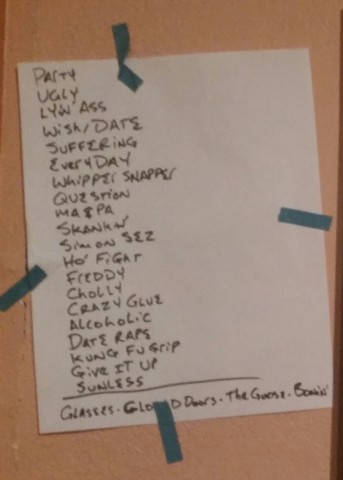 PARTY
UGLY
LYIN' ASS
WISH/DATE
SUFFERING
EVERYDAY
WHIPPER SNAPPER
QUESTION
MA & PA
SKANKIN'
SIMON SEZ
HO' FIGHT
FREDDY
CHOLLY
CRAZY GLUE
ALCOHOLIC
DATE RAPE
KUNG FU GRIP
GIVE IT UP
SUNLESS
GLASSES · DOORS · THE GOOSE · BONIN'